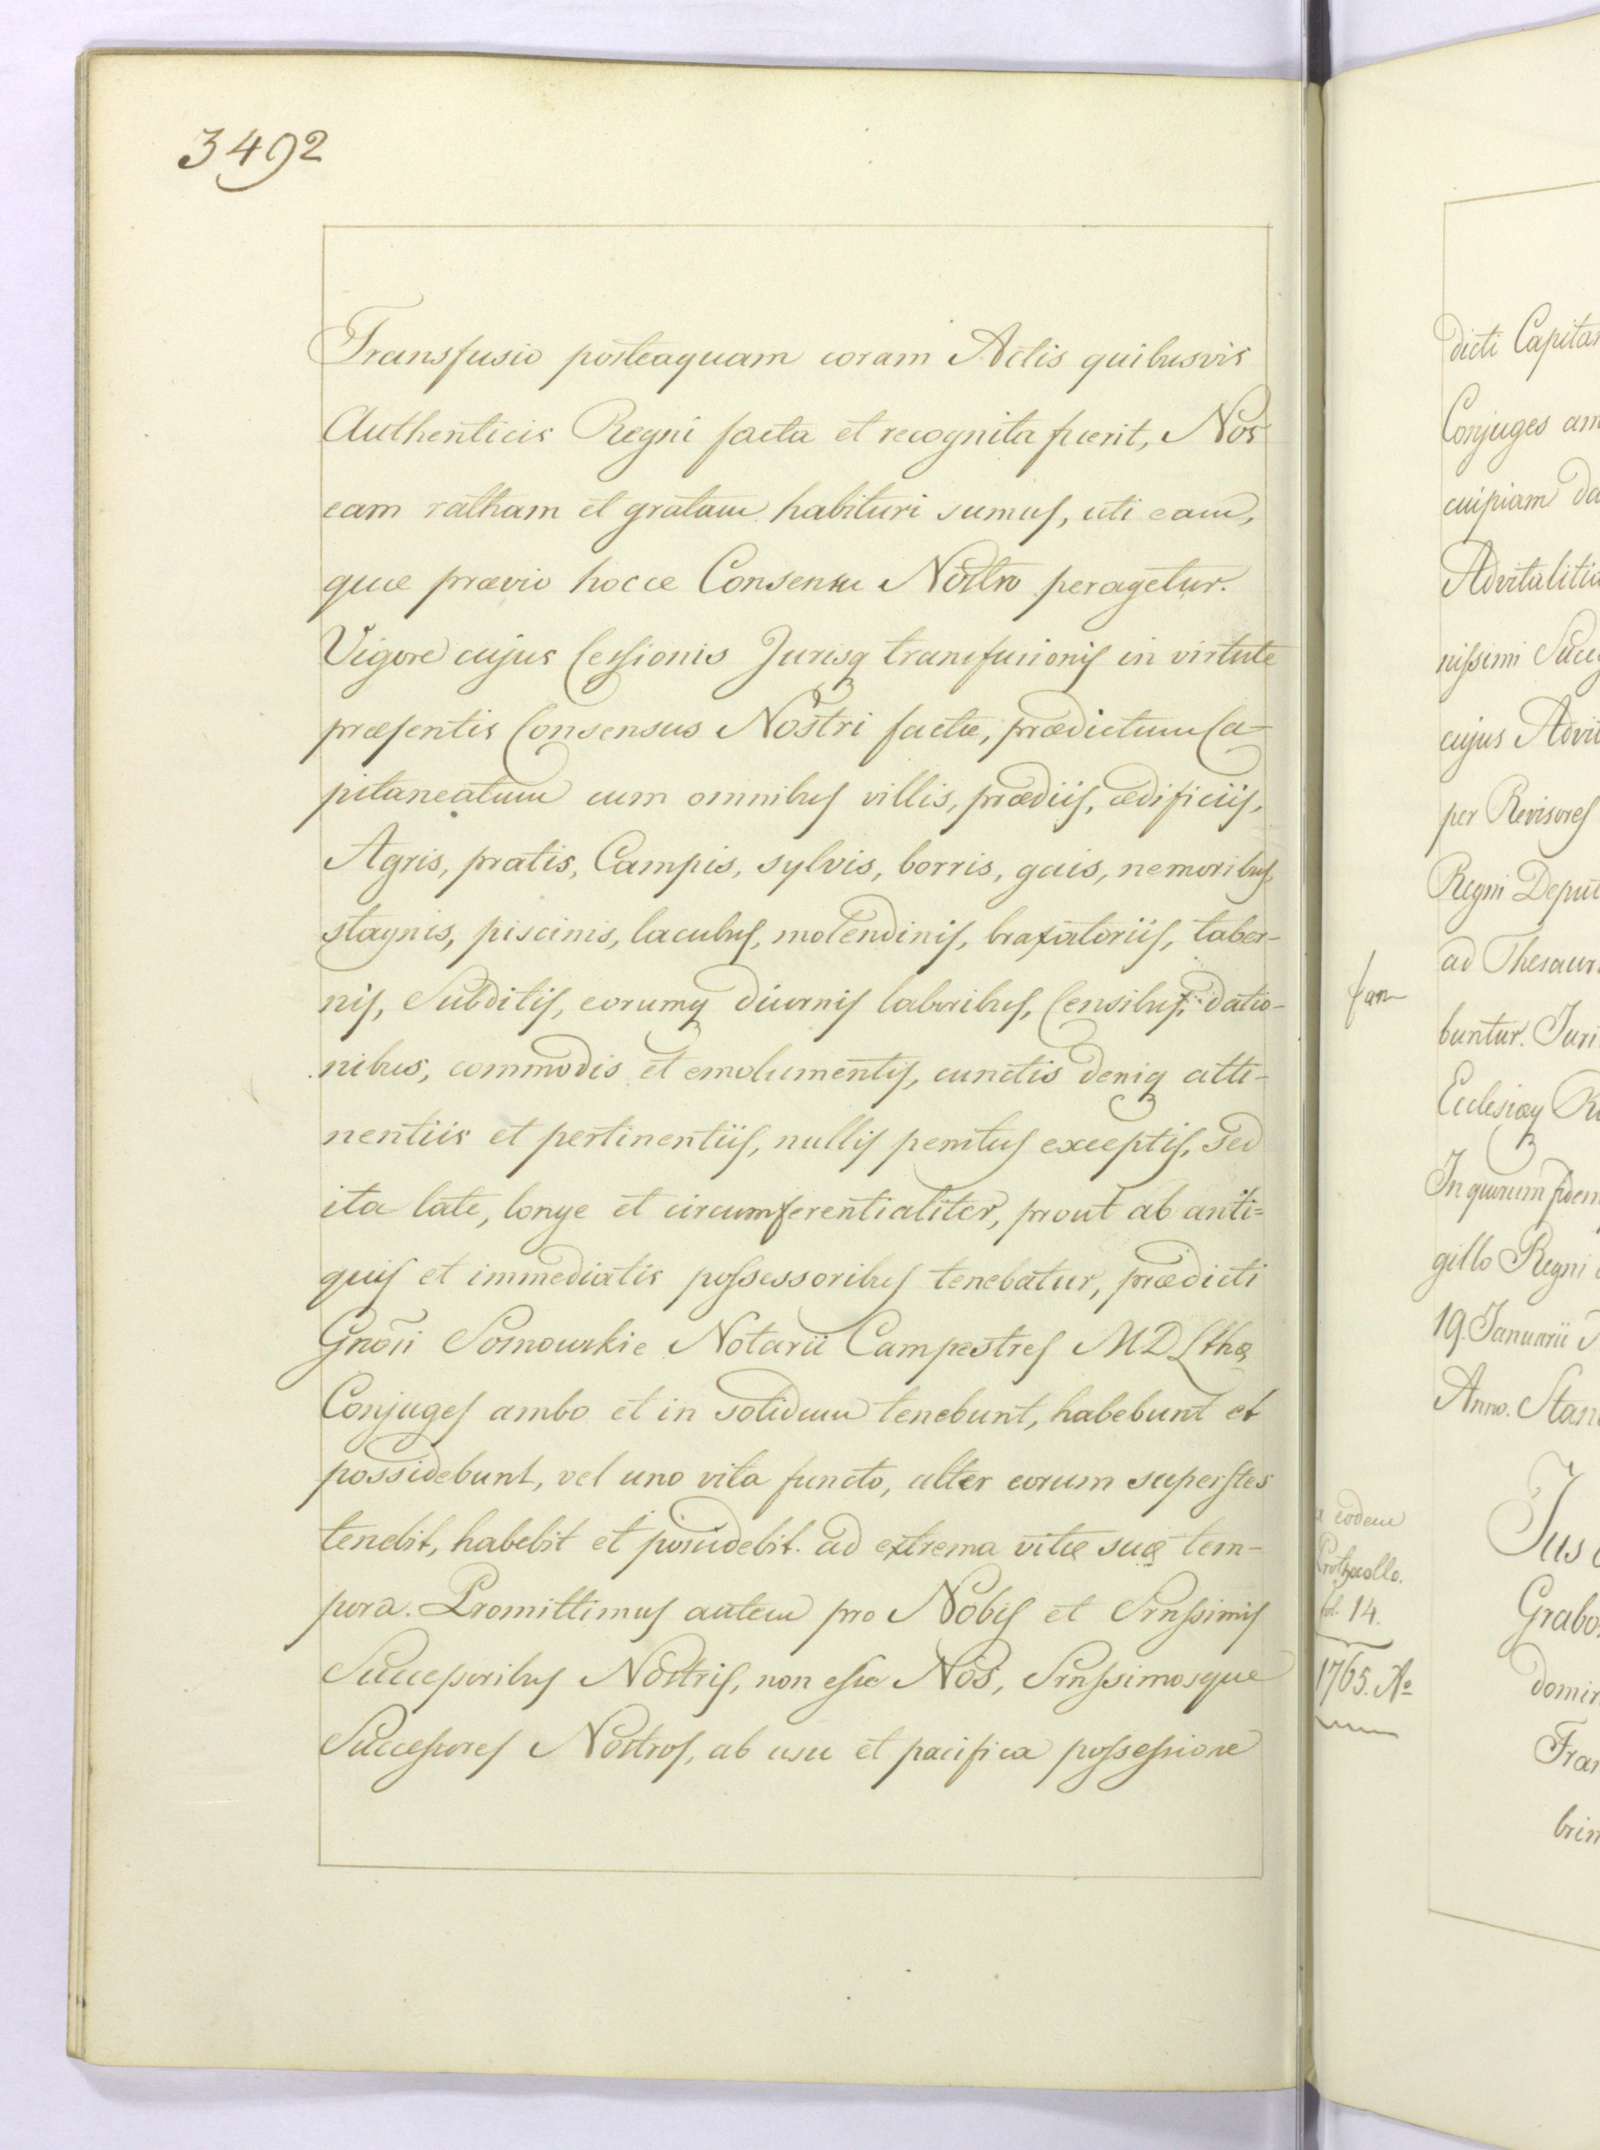 3492
Transfusio posteaquam coram Actis quibusvis
Authenticis Regni facta et recognita fuerit, Nos
eam ratham et gratam habituri sumus, uti eam,
quæ prævio hocce Consensu Nostro peragetur.
Vigore cujus Cessionis Jurisq transfusionis in virtute
præsentis Consensus Nostri factæ, prædictum Ca-
pitaneatum cum omnibus villis, prædiis, ædificiis,
Agris, pratis, Campis, sylvis, borris, gais, nemoribus,
stagnis, piscinis, lacubus, molendinis, braxatoriis, taber-
nis, Subditis, eorumq diurnis laboribus, Censibus, datio-
nibus, commodis et emolumentis, cunctis deniq atti-
nentiis et pertinentiis, nullis penitus exceptis, sed
ita late, longe et circumferentialiter, prout ab anti=
quis et immediatis possessoribus tenebatur, prædicti
Gnosi Sosnowskie Notarii Campestres MDLthæ
Conjuges ambo et in solidum tenebunt, habebunt et
possidebunt, vel uno vita functo, alter eorum superstes
tenebit, habebit et possidebit ad extrema vitæ suæ tem-
pora. Promittimus autem pro Nobis et Srnssimis
Successoribus Nostris, non esse Nos, Srnssimosque
Successores Nostros, ab usu et pacifica possessione
dicti Capita
Conjuges am
cuipiam da
Advitalitiu
nissimi Succ
cujus Advit
per Revisores
Regni Deput
ad Thesaur
buntur. Juri
Ecclesiæq Ro
In quorum fidem
gillo Regni
19. Januarii
Anno. Stan
eodem
Prothocollo.
fol. 14.
1765. Ao
Jus
Grabo
domin
Fran
brin